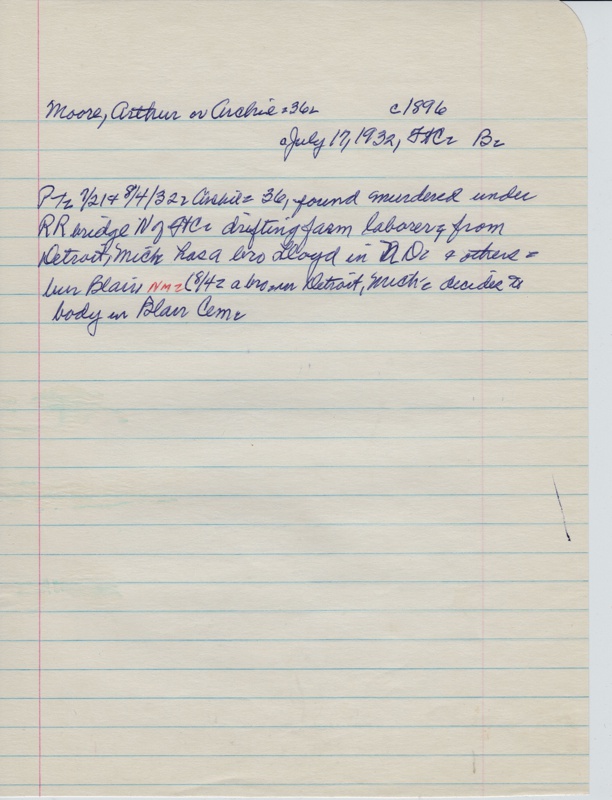 Moore, Arthur or Archie = 36 c1896
July 17, 1932, FtC B
PT 7/21 + 8/4/32 Archie = 36, found murdered under
RR bridge N of FtC drifting farm laborer, from
Detroit, Mich has a bro Lloyd in N D. & others =
bur Blair, NM = (8/4 = a bro in Detroit, Mich decides to
body in Blair Cem